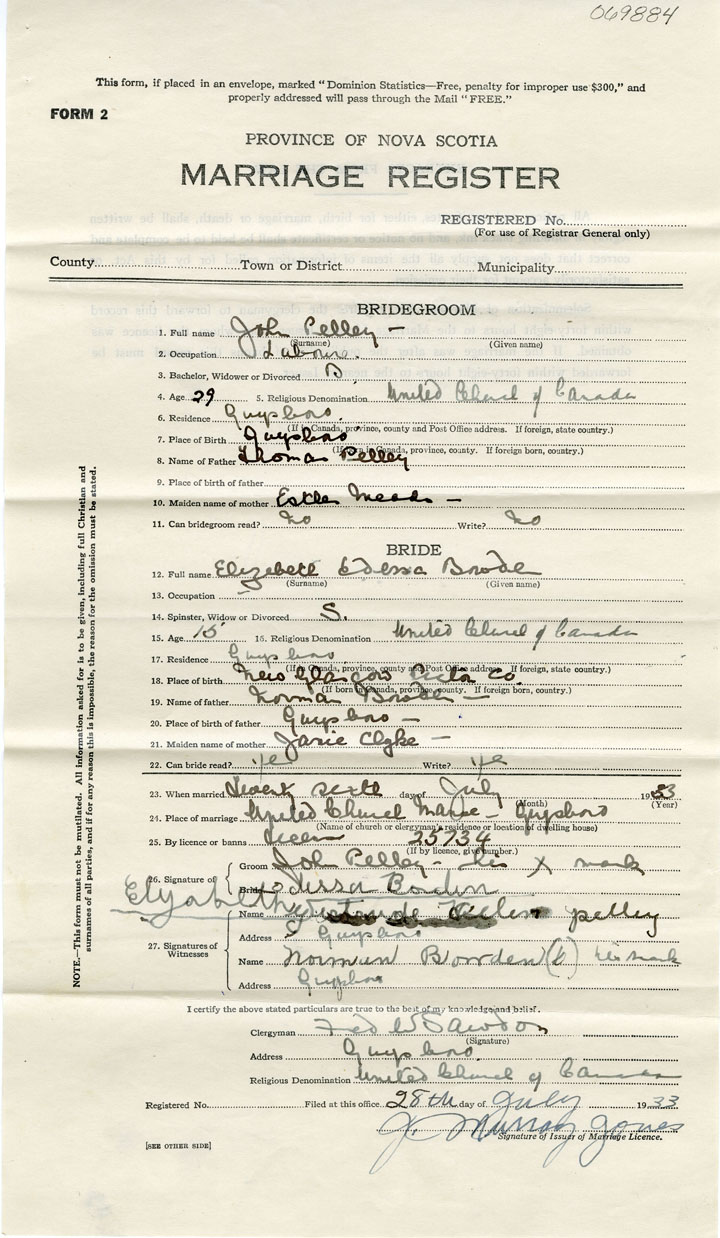 069884
This form, if placed in an envelope, marked “Dominion Statistics—Free, penalty for improper use $300,” and
properly addressed will pass through the Mail “FREE.”
FORM 2
PROVINCE OF NOVA SCOTIA
MARRIAGE REGISTER
REGISTERED No.
(For use of Registrar General only)
County Town or District Municipality
BRIDEGROOM
1. Full name John Pelley –
(Surname) (Given name)
2. Occupation Laborer.
3. Bachelor, Widower or Divorced B
4. Age 29 5. Religious Denomination United Church of Canada
6. Residence Guysboro.
(If Canada, province, county and Post Office address. If foreign, state country.)
7. Place of Birth Guysboro
(If born in Canada, province, county. If foreign born, country.)
8. Name of Father Thomas Pelley
9. Place of birth of father
10. Maiden name of mother Esther Meade –
11. Can bridegroom read? No Write? No
BRIDE
12. Full name Elizebeth Edessa
(Surname) (Given name)
13. Occupation –
14. Spinster, Widow or Divorced S.
15. Age 15 16. Religious Denomination United Church of Canada
17. Residence Guysboro
(If in Canada, province, county and Post Office address. If foreign, state country.)
18. Place of birth New Glasgow Pictou Co.
(If born in Canada, province, county. If foreign born, country.)
19. Name of father Norman
20. Place of birth of father Guysboro –
21. Maiden name of mother Janie Clyke –
22. Can bride read? Yes Write? Yes
23. When married Twenty sixth day of July 1933
(Month) (Year)
24. Place of marriage United Church Manse – Guysboro
(Name of church or clergyman's residence or location of dwelling house)
25. By licence or banns Licen 25734
(If by licence, give number.)
26. Signature of Groom John Pelley – his X mark
Bride Edessa Borden
Elyabeth
27. Signatures of Witnesses
Name Gertrude pelley
Address Guysboro
Name Norman Bowden (X) his mark
Address Guysboro
I certify the above stated particulars are true to the best of my knowledge and belief.
Clergyman Fred W Sawdon
(Signature)
Address Guysboro.
Religious Denomination United Church of Canada
Registered No. Filed at this office 28th day of July 1933
J. Murray Jones
Signature of Issuer of Marriage Licence.
[SEE OTHER SIDE]
NOTE.—This form must not be mutilated. All information asked for is to be given, including full Christian and
surnames of all parties, and if for any reason this is impossible, the reason for the omission must be stated.